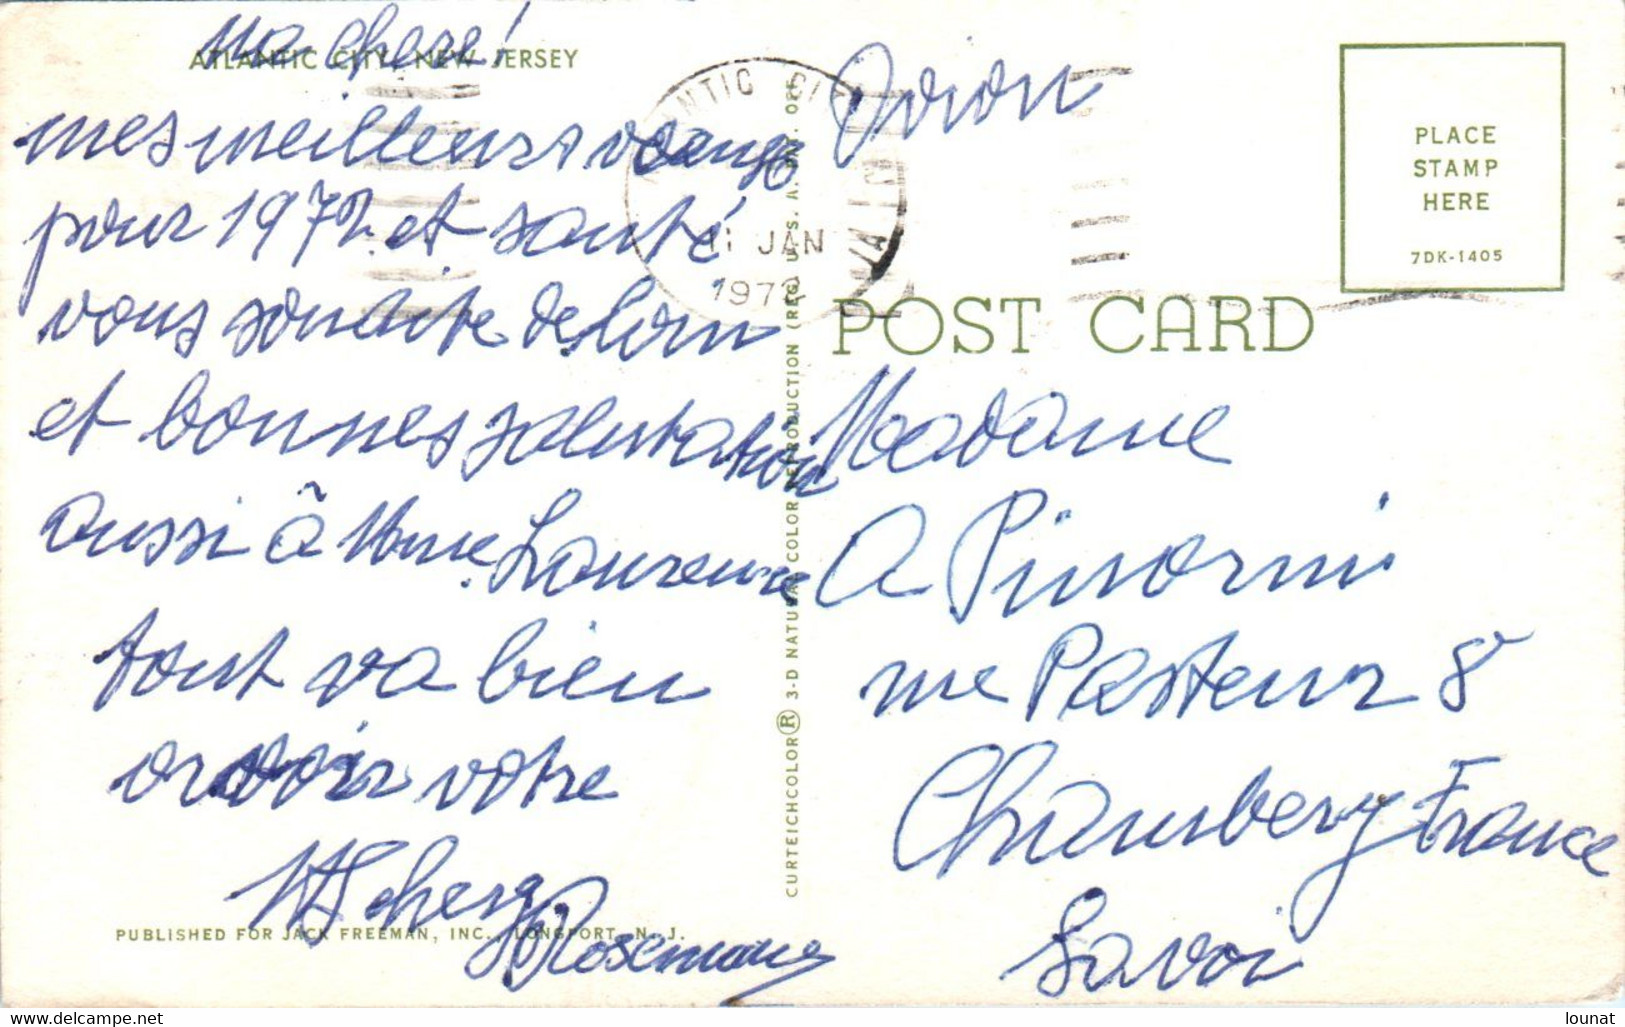 Ma chere!
ATLANTIC CITY, NEW JERSEY
mes meilleurs voeux
pour 1972 et santé
vous souhaite de loin
et bonnes salutation
aussi à Mme. Laurence
tout va bien
votre
Rosemarie
PUBLISHED FOR JACK FREEMAN, INC., LONGPORT, N. J.
CURTEICHCOLOR ® 3-D NATURAL COLOR REPRODUCTION (REG. U.S.A. PAT. OFF.)
11 JAN
197
Avion
PLACE
STAMP
HERE
7DK-1405
POST CARD
Madame
A Pinorni
rue Pasteur 8
Chambery France
Savoi
delcampe.net
lounat